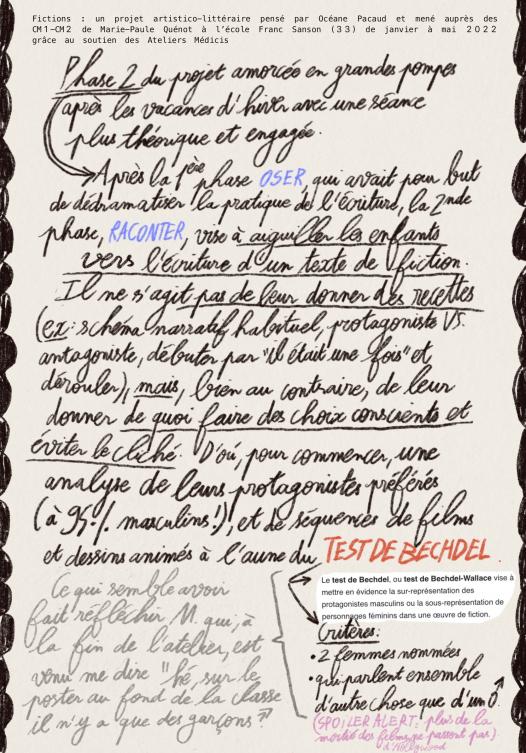 Fictions : un projet artistico-littéraire pensé par Océane Pacaud et mené auprès des
CM1-CM2 de Marie-Paule Quénot à l'école Franc Sanson (33) de janvier à mai 2022
grâce au soutien des Ateliers Médicis
Phase 2 du projet amorcée en grandes pompes
après les vacances d'hiver avec une séance
plus théorique et engagée.
Après la 1ère phase OSER, qui avait pour but
de dédramatiser la pratique de l'écriture, la 2nde
phase, RACONTER, vise à aiguiller les enfants
vers l'écriture d'un texte de fiction.
Il ne s'agit pas de leur donner des recettes
(ex : schéma narratif habituel, protagoniste VS.
antagoniste, débuter par "il était une fois" et
dérouler), mais, bien au contraire, de leur
donner de quoi faire des choix conscients et
éviter le cliché. D'où, pour commencer, une
analyse de leurs protagonistes préférés
(à 95% masculins !), et de séquences de films
et dessins animés à l'aune du TEST DE BECHDEL.
Le test de Bechdel, ou test de Bechdel-Wallace vise à
mettre en évidence la sur-représentation des
protagonistes masculins ou la sous-représentation de
personnages féminins dans une œuvre de fiction.
Critères :
• 2 femmes nommées
• qui parlent ensemble
d'autre chose que d'un ♂.
(SPOILER ALERT : plus de la
moitié des films ne passent pas)
d'Hollywood
Ce qui semble avoir
fait réfléchir M. qui, à
la fin de l'atelier, est
venu me dire "hé, sur le
poster au fond de la classe
il n'y a que des garçons ?"